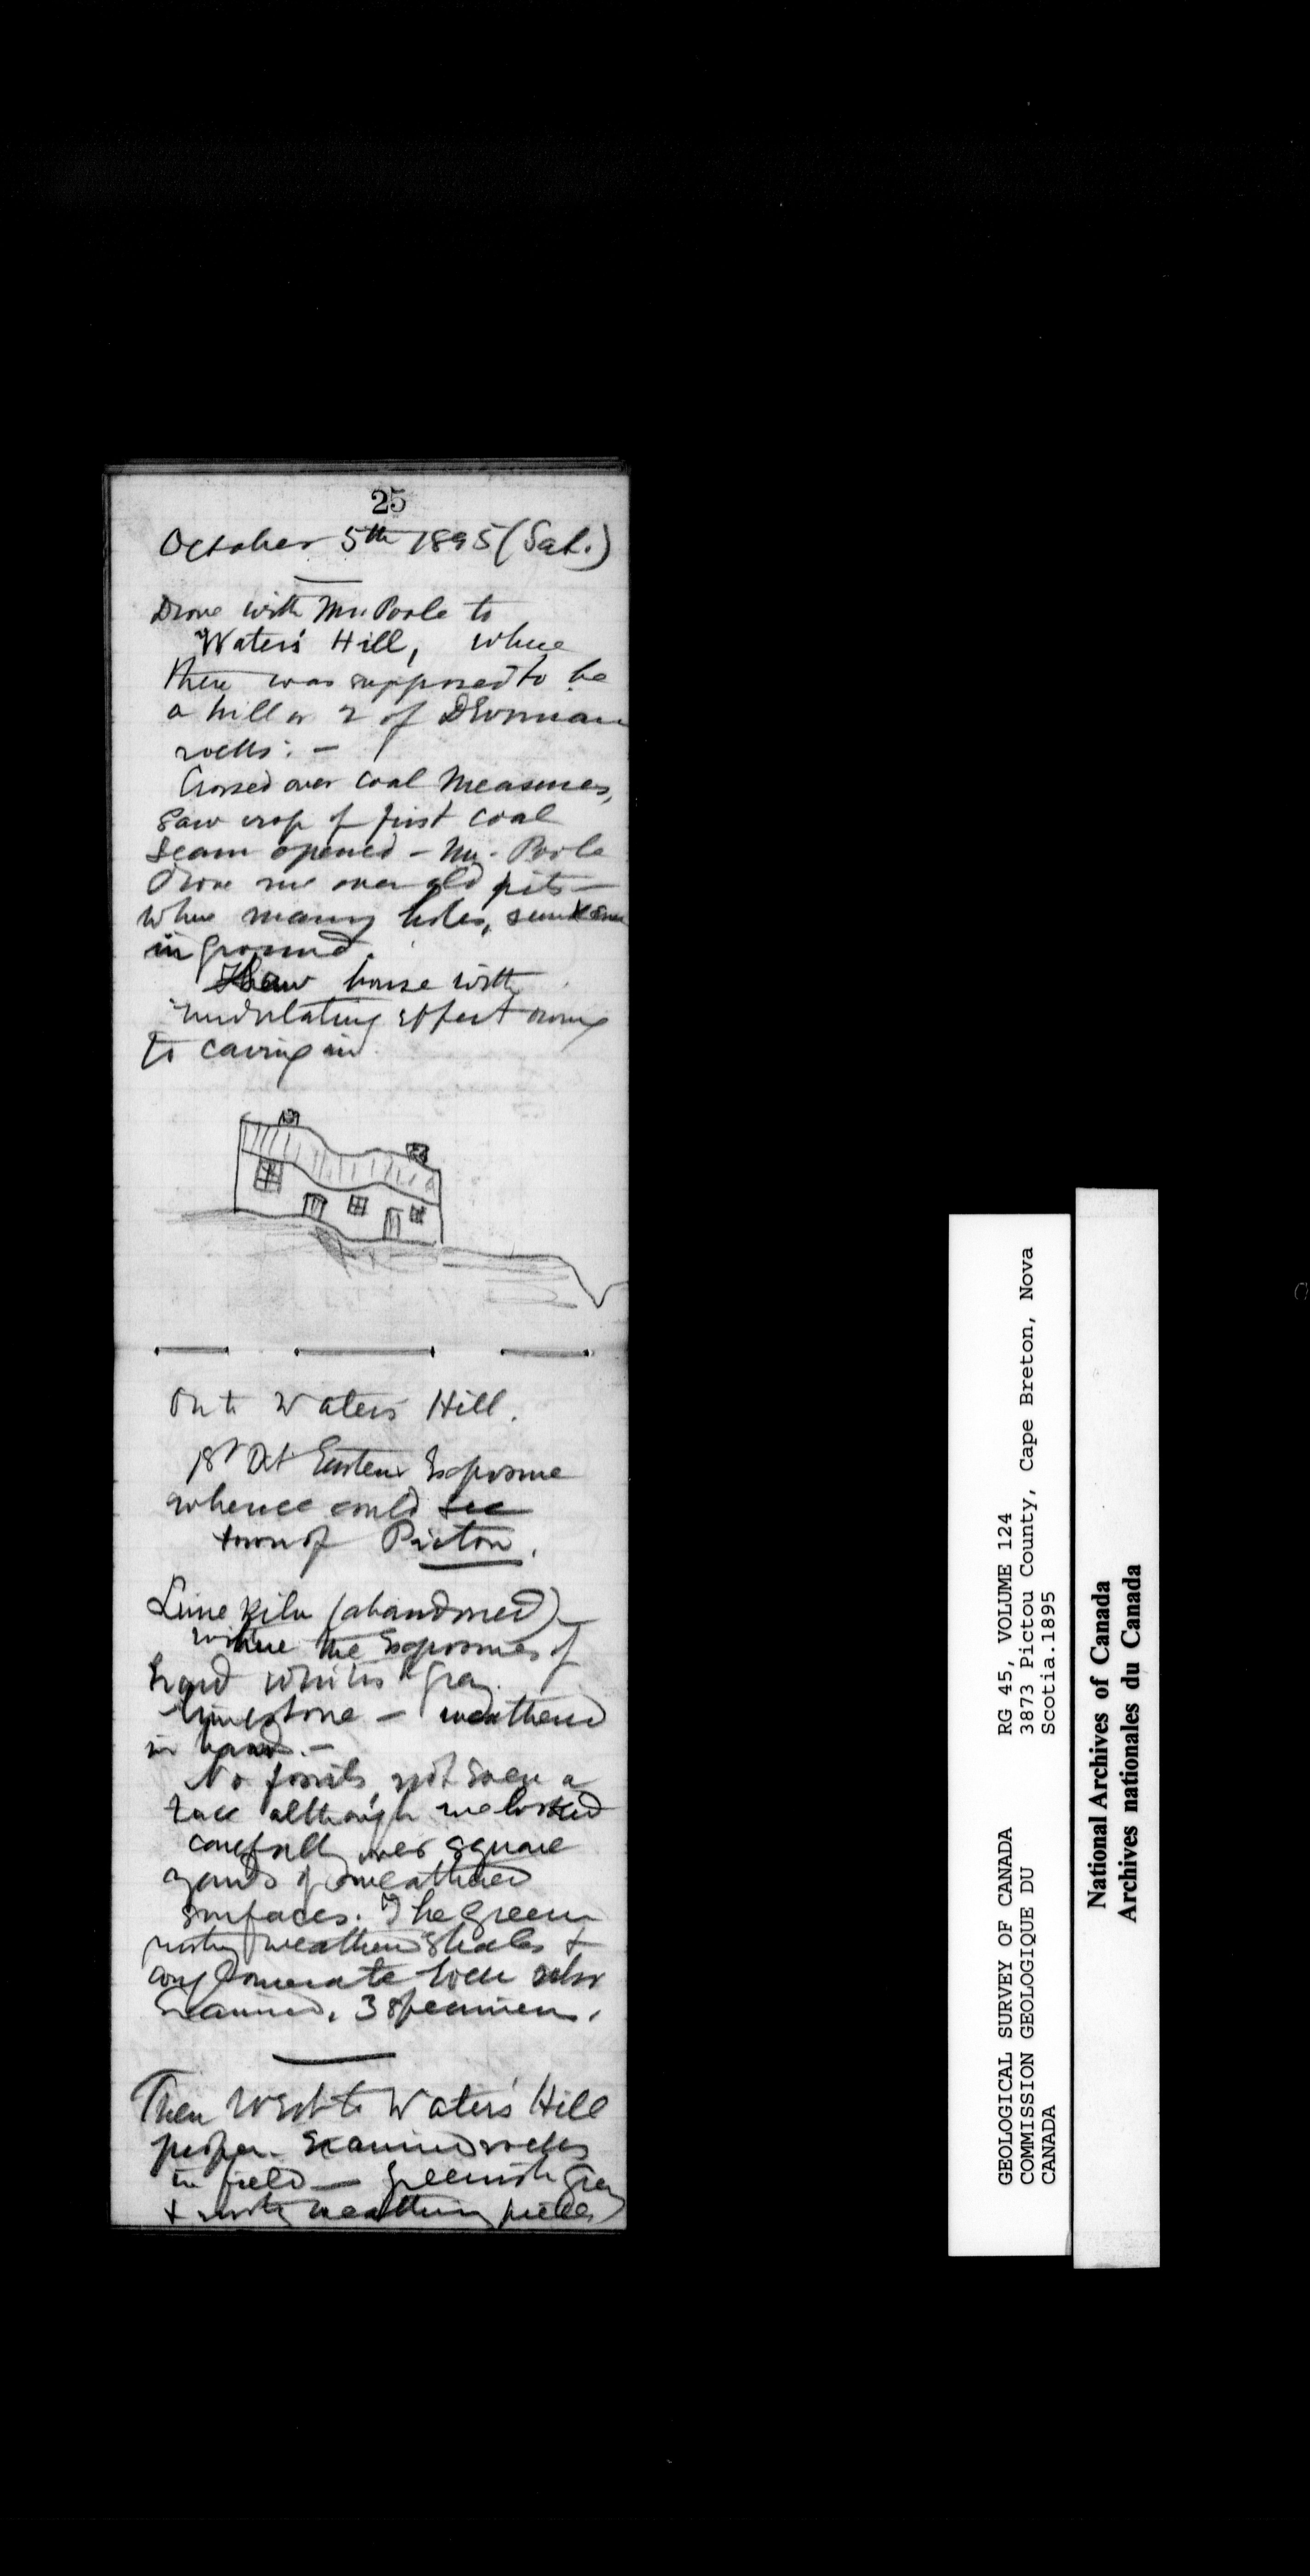 25
October 5th 1895 (Sat.)
Drove with Mr. Poole to
Waters' Hill, where
there was supposed to be
a hill or 2 of Devonian
rocks: —
Crossed over Coal Measures,
Saw crop of first coal
seam opened — Mr. Poole
drove me over old pits —
where many holes, sunken
in ground.
Saw house with
undulating effect owing
to caving in.
On to Waters' Hill.
1st At Eastern Exposure
whence could see
town of Pictou.
Lime kiln (abandoned) —
where the exposures of
hard whitish gray
limestone — weathered
in —
No fossils, not even a
trace although we looked
carefully over square
yards of weathered
surfaces. The green
rusty weathered shales &
conglomerate were also
examined. 3 specimens.
Then went to Waters' Hill
proper. Examined rocks
in field — greenish gray
& rusty weathering pieces
GEOLOGICAL SURVEY OF CANADA
COMMISSION GEOLOGIQUE DU
CANADA
RG 45, VOLUME 124
3873 Pictou County, Cape Breton, Nova
Scotia.1895
National Archives of Canada
Archives nationales du Canada